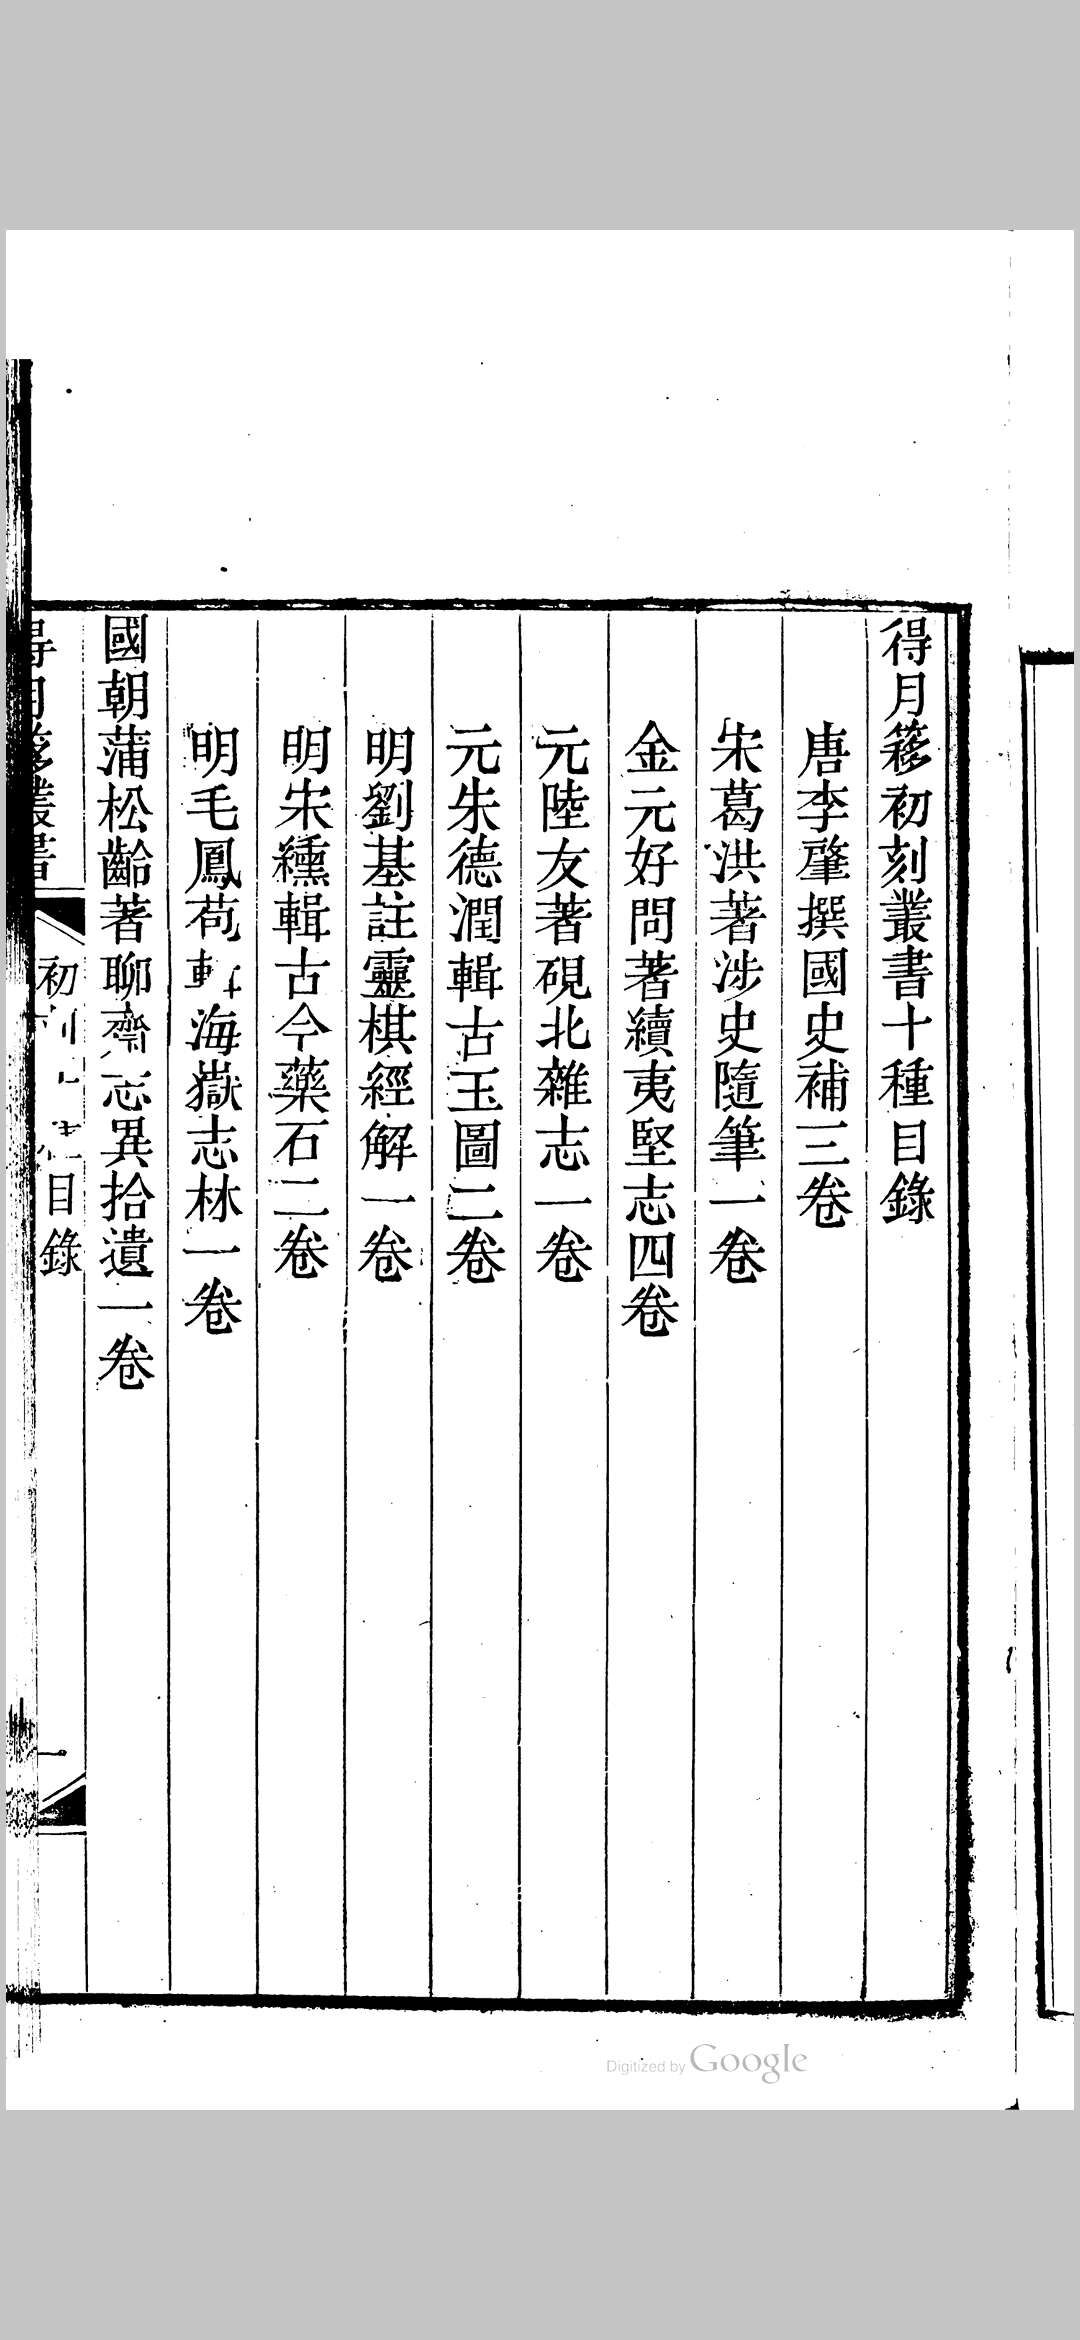 得月簃初刻叢書十種目錄
唐李肇撰國史補三卷
宋葛洪著涉史隨筆一卷
金元好問著續夷堅志四卷
元陸友著硯北雜志一卷
元朱德潤輯古玉圖二卷
明劉基註靈棋經解一卷
明宋纁輯古今藥石二卷
明毛鳳苞輯海嶽志林一卷
國朝蒲松齡著聊齋志異拾遺一卷
得月簃叢書
初刻 目錄
一
Digitized by Google